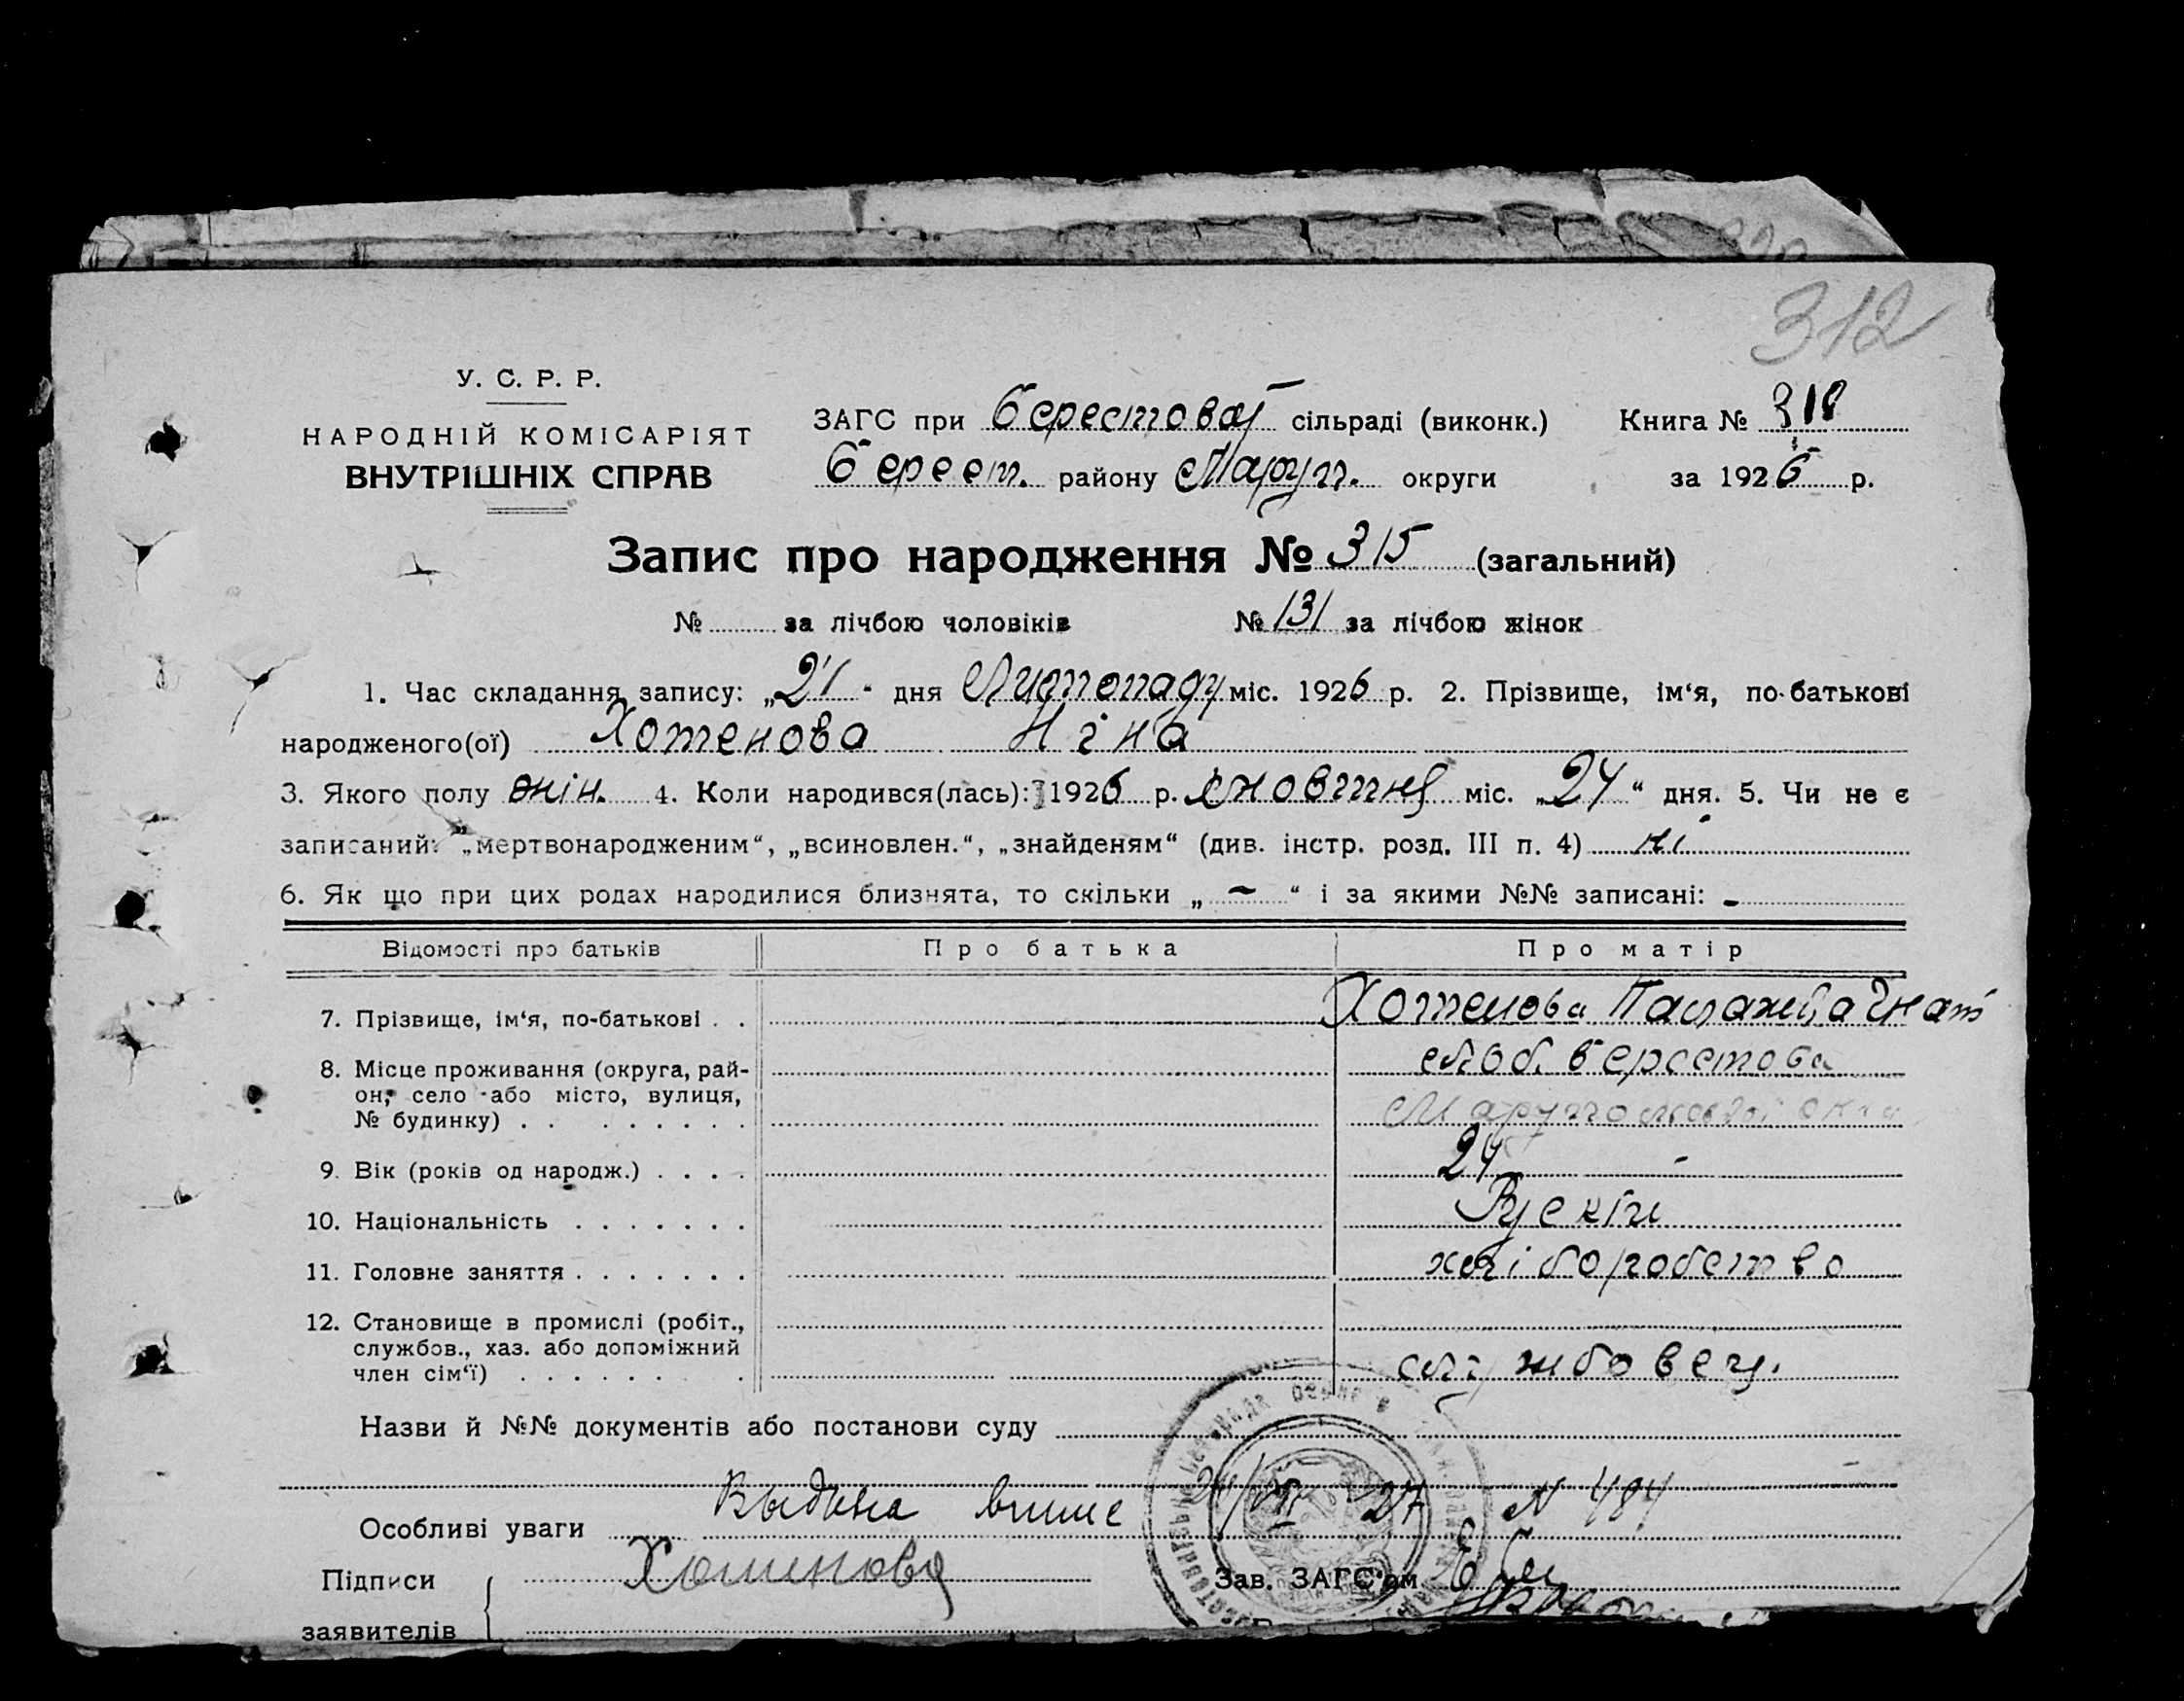 312
У. С. Р. Р.
НАРОДНІЙ КОМІСАРІЯТ
ВНУТРІШНІХ СПРАВ
ЗАГС при Берестовой сільраді (виконк.) Книга № 318
Берест. району Маруп. округи за 1926 р.
Запис про народження № 315 (загальний)
№ за лічбою чоловіків № 131 за лічбою жінок
1. Час складання запису: „21" дня Листопаду міс. 1926 р. 2. Прізвище, ім‘я, по-батькові
народженого(ої) Хотенова Ніна
3. Якого полу жін. 4. Коли народився(лась): 1926 р. жовтня міс. „24“ дня. 5. Чи не є
записаний: „мертвонародженим“, „всиновлен.“, „знайденям“ (див. інстр. розд. III п. 4) ні
6. Як що при цих родах народилися близнята, то скільки „ – “ і за якими №№ записані: –
Відомості про батьків Про батька Про матір
7. Прізвище, ім‘я, по-батькові . . Хотенова Палажка Гнат
8. Місце проживання (округа, рай-
он, село або місто, вулиця,
№ будинку) . . . . . . . . Слоб. Берестова
9. Вік (років од народж.) . . . . 24 -
10. Національність . . . . . . .
11. Головне заняття . . . . . . . хліборобство
12. Становище в промислі (робіт.,
службов., хаз. або допоміжний
член сім‘ї) . . . . . . . . службовец.
Назви й №№ документів або постанови суду
Особливі уваги Выдана 24/VI 27 N 484
Підписи Хотенова Зав. ЗАГС‘ом
заявителів